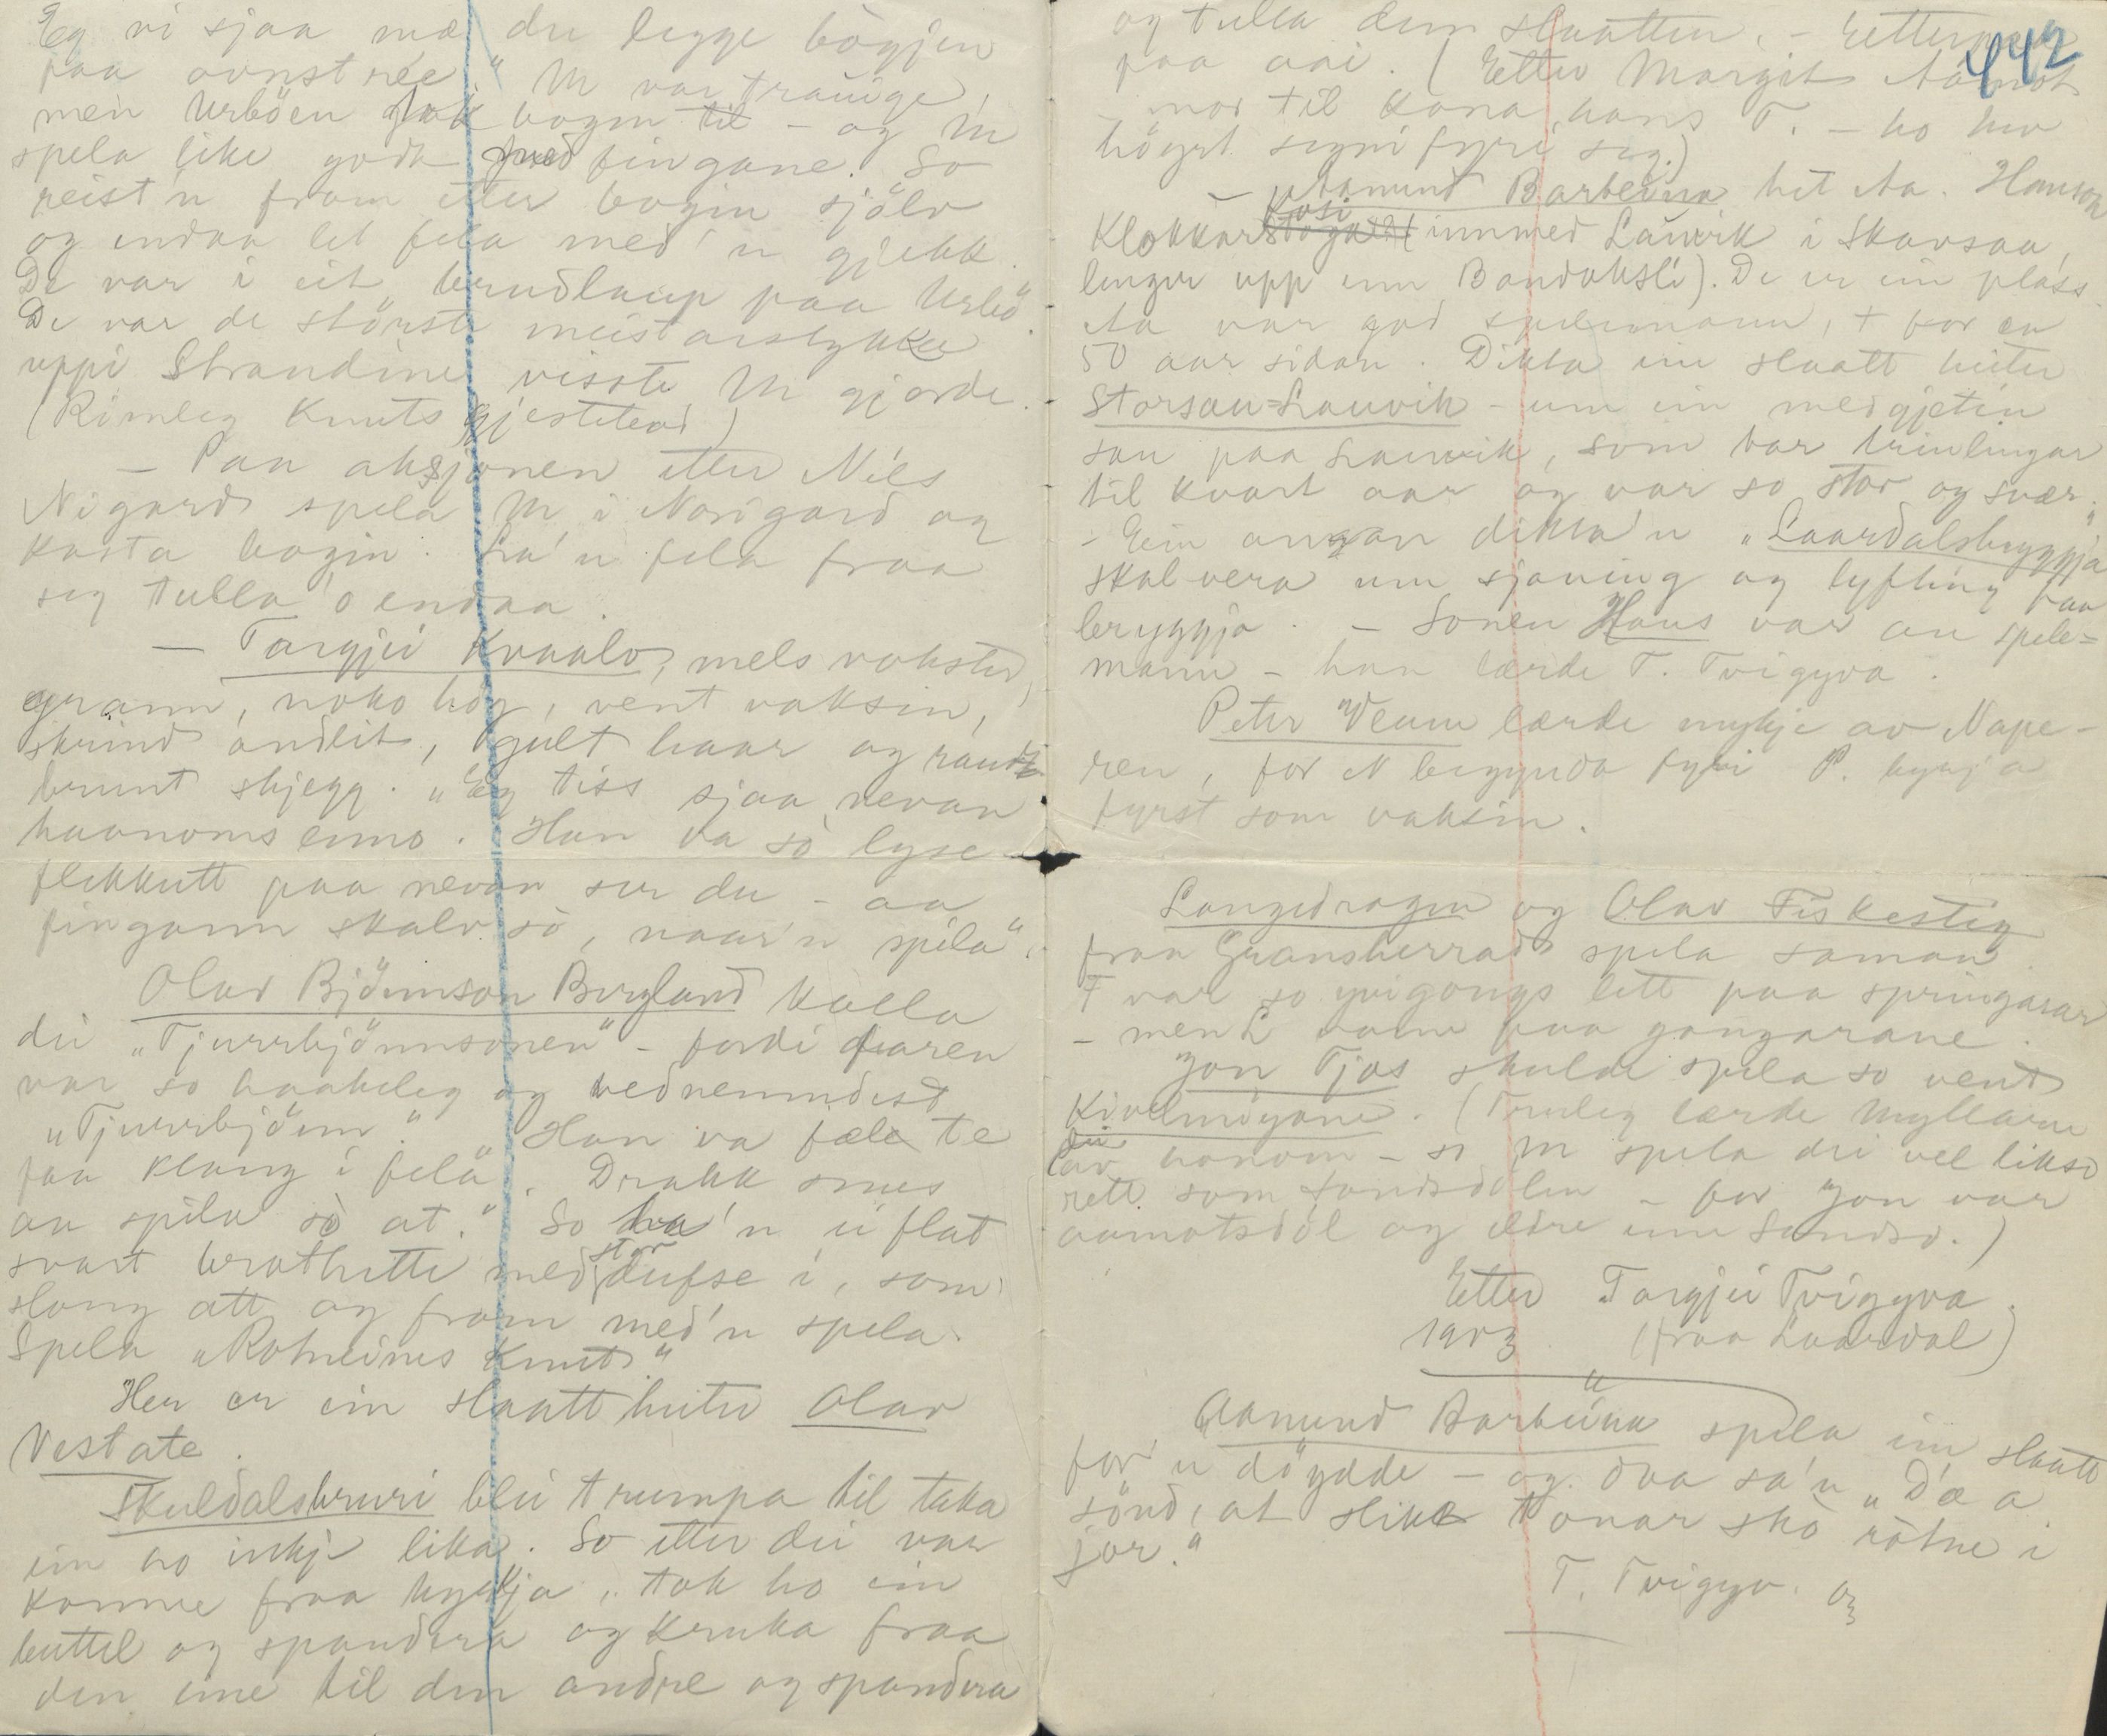 Eg vi sjaa mæ du legge bogjen
paa aonst ree." M var trauige,
men Urbøen tok bogen til - og M
spela like godt med fingane. So
reist'n fram etter bogin sjölv
og endaa let fela med'n gjekk.
De var i eit brudlaup paa Urbö.
De var de störste meistarstykke
uppi Strandine visste M gjorde.
(Rimleg Knuts gjestebod)
- Paa aksjonen etter Nils
Nigard spela M i Norigard og
kasta bogin. La'n fela fraa
seg tulla o endaa.
- Targjei Kvaalo, mels vokster,
grann, noko hög, vent vaksin,
skrind andlit, gult haar og raudt
brunt skjegg. "Eg tiss sjaa nevan
haanoms enno. Han va so lyse
flekkutt paa nevan ser du - aa
fingann skalv so, naar'n spila".
Olav Björnson Bergland kalla
dei "Tjurrbjönnsonen" - fordi faren
var so haakeleg og vednemndest
"Tjurrbjönn". "Han va fæle te
faa klang i fela". Drakk smes
aa spila so at." So ha'n ei flat
svart brothette med stor dufse i, som
slong att og fram med'n spela.
Spela "Rotneimes Knut"
Her er ein slaatt heiter Olav
Vestate.
Skuldalsbruri blei trumpa til taka
ein ho inkje lika. So etter dei var
komne fraa kyrkja, tok ho ein
buttel og spandera og kruka fraa
den eine til den andre og spandera
og tulla den slaatten. - Etterpaa
442
paa aai. (Etter Margit Aamot
mor til kona hans T. - ho hev
högst segni fyri seg.)
- Aamund Barbeina het Aa. Hanson
Klokkarkosi (innmed Lauvik i Skavsaa,
lenger upp enn Bandaksli). De er ein plass.
Aa var god spelemann, + for ca
50 aar sidan. Dikta ein slaatt heiter
Storsau-Lauvik - um ein medgjetin
sau paa Lauvik, som bar trinlingar
til kvart aar og var so stor og svær.
- Ein annan dikta'n "Laardalsbryggja"
skal vera um sjaving og lyfting paa
bryggja. - Sonen Hans var au spele-
mann - han lærde T. Tvigyva.
Peter Veum lærde mykje av Nape-
ren, for N begynda fyri P. kyrja
fyrst som vaksin.
Langedragen og Olav Fiskestig
fraa Gransherrad spela saman.
F var so yvigangs lett paa springarar
- men L vann paa gangarane.
Jon Tjos skulde spela so vent
Kivlemöyane. (Truleg lærde Myllaren
dei av honom - so M spela dei vel likso
rett som Sandsdalen - for Jon var
aamotsdöl og eldre enn Sandsd.)
Etter Targjei Tvigyva.
1903 (fraa Laardal)
Aamund Barbeina spela ein slaatt
for'n döydde - og daa sa'n "D'æ a
sönd, at slike tonar sko rotne i
jor."
T. Tvigyv. 03